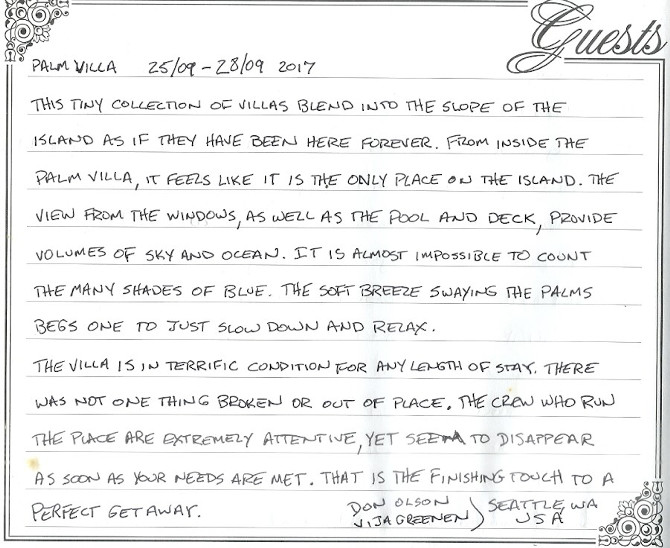 Guests
PALM VILLA 25/09 - 28/09 2017
THIS TINY COLLECTION OF VILLAS BLEND INTO THE SLOPE OF THE
ISLAND AS IF THEY HAVE BEEN HERE FOREVER. FROM INSIDE THE
PALM VILLA, IT FEELS LIKE IT IS THE ONLY PLACE ON THE ISLAND. THE
VIEW FROM THE WINDOWS, AS WELL AS THE POOL AND DECK, PROVIDE
VOLUMES OF SKY AND OCEAN. IT IS ALMOST IMPOSSIBLE TO COUNT
THE MANY SHADES OF BLUE. THE SOFT BREEZE SWAYING THE PALMS
BEGS ONE TO JUST SLOW DOWN AND RELAX.
THE VILLA IS IN TERRIFIC CONDITION FOR ANY LENGTH OF STAY. THERE
WAS NOT ONE THING BROKEN OR OUT OF PLACE. THE CREW WHO RUN
THE PLACE ARE EXTREMELY ATTENTIVE, YET SEEM TO DISAPPEAR
AS SOON AS YOUR NEEDS ARE MET. THAT IS THE FINISHING TOUCH TO A
PERFECT GETAWAY.
DON OLSON
VIJA GREENEN
SEATTLE, WA
USA